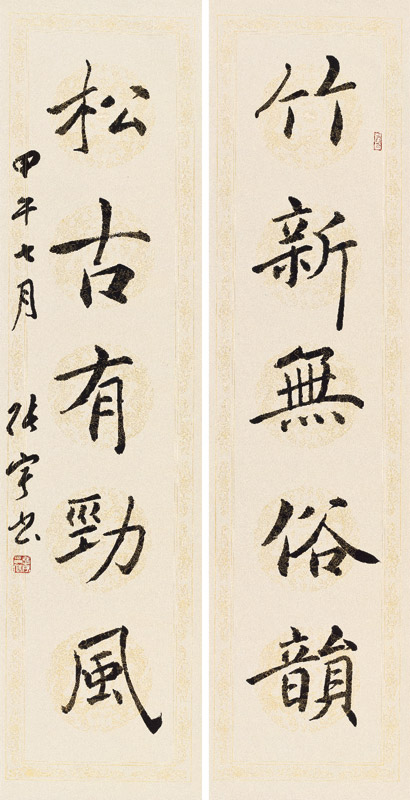 竹新無俗韻
松古有勁風
甲午七月
張宇书